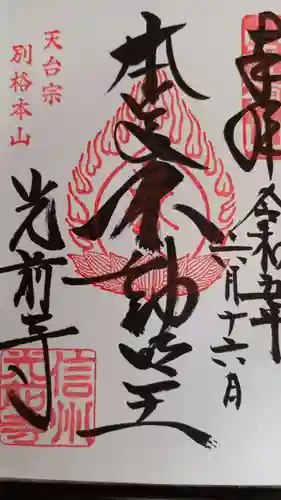 奉拝
令和五年
六月十六日
本尊不動明王
天台宗
別格本山
光前寺
信州
光前寺